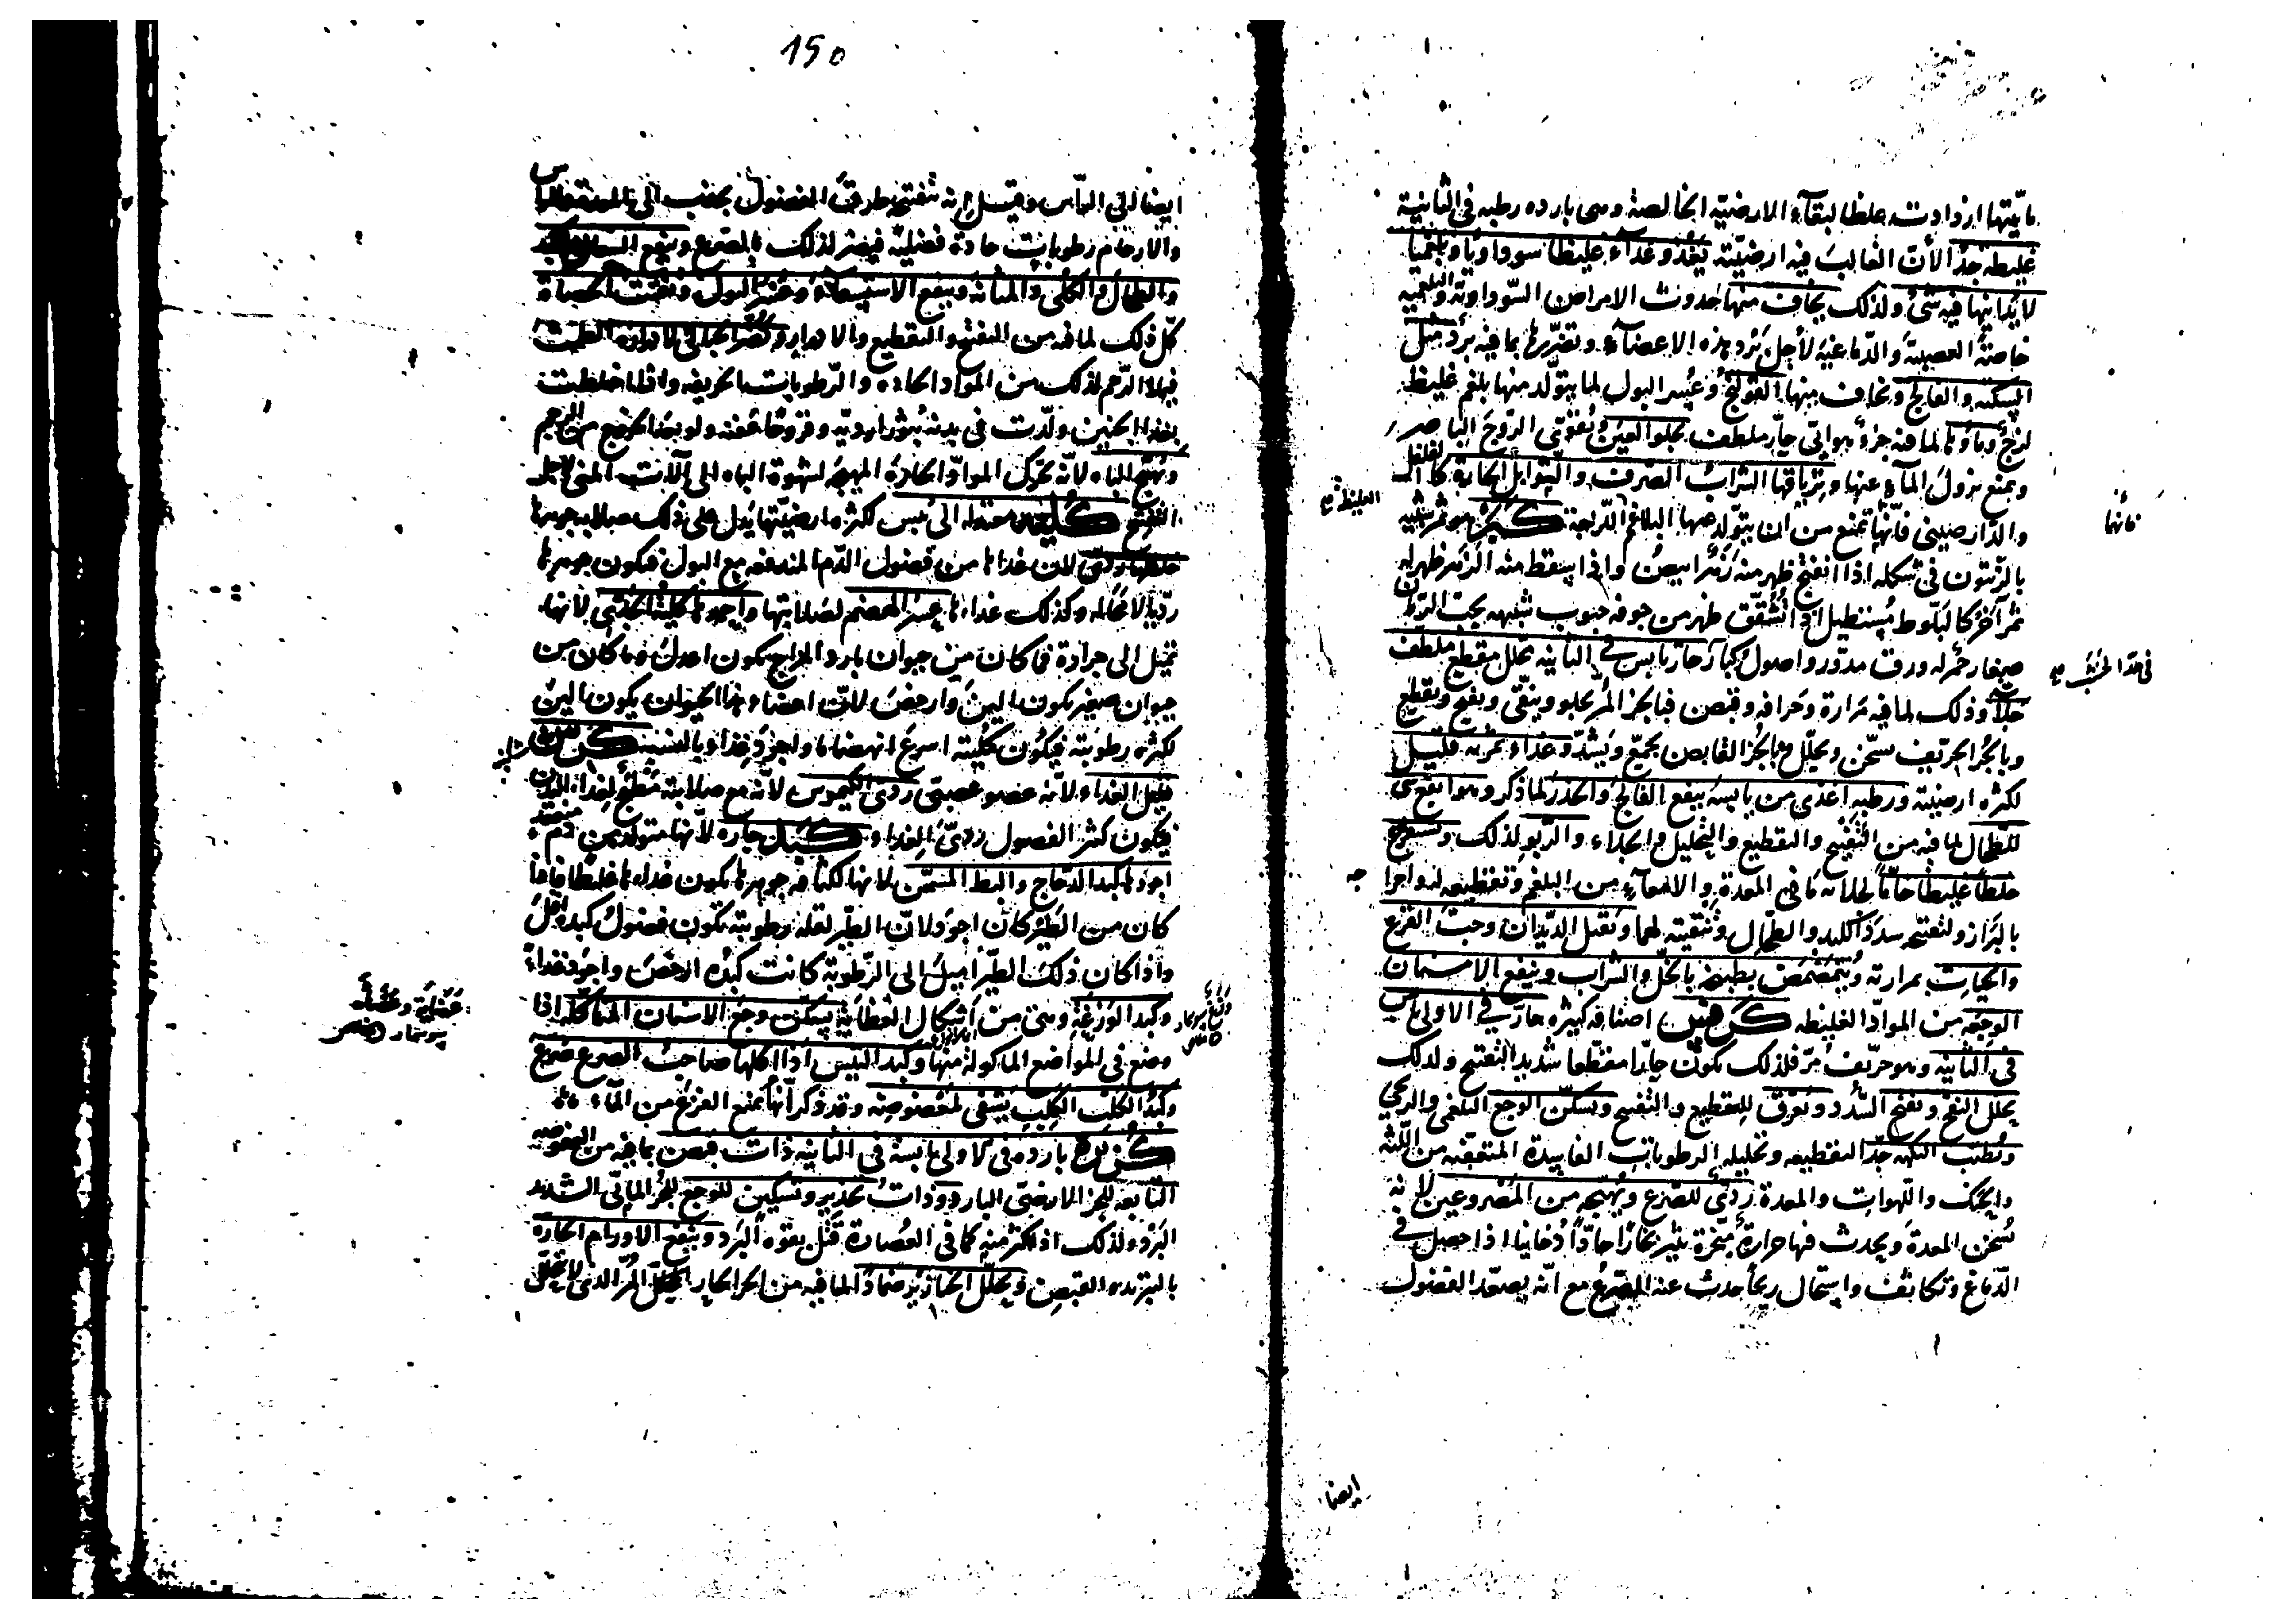 مائيتها ازدادت غلظا لبقاء الارضية الخالصة وهى بارده رطبه فى الثانية
غليظه جدا لأن الغالب فيه ارضيته يغذو غذاء غليظا سوداويا وبلغميا
لا يدانيها فيه شئ ولذلك يخاف منها حدوث الامراض السوداوية والبلغميه
خاصة العصبية والدماغيه لأجل برد هذه الاعضاء وتضررها بما فيه برد مثل
السكته والفالج ويخاف منها القولنج وعسر البول لما يتولد منها بلغم غليظ
لزج وماؤها لما فيه جزء هوائى حار ملطف يجلو العين ويقوى الروح الباصر
ويمنع نزول الماء عنها وترياقها الشراب الصرف والتوابل الحارة كالفلفل
والدارصينى فانها تمنع من ان يتولد عنها البلاغم اللزجة كبر هو ثمر شبيه
الغليظة
فانها
بالزيتون فى شكله اذا انفتح ظهر منه زهر ابيض واذا سقط منه الزهر ظهر له
ثمر آخر كالبلوط مستطيل اذا تشقق ظهر من جوفه حبوب شبيهه بحب الرمان
صغار حمر له ورق مدور واصول كبار حار يابس فى الثانيه محلل مقطع ملطف
جلاء وذلك لما فيه مرارة وحرافه وقبض فبالجزء المر يجلو وينقى ويفتح ويقطع
وبالجزء الحريف يسخن ويحلل وبالجزء القابض يجمع ويشد وغذاء ثمرته قليل
لكثره ارضيته ورطبه اغذى من يابسه ينفع الفالج والخدر لما ذكر وهو انفع شئ
للطحال لما فيه من التفتيح والتقطيع والتحليل والجلاء والربو لذلك ويستفرغ
خلطا غليظا خاما لجلائه ما فى المعدة والامعاء من البلغم وتقطيعه له واخراجه
بالبراز ولتفتيح سدد الكبد والطحال وتنقيته لهما ويقتل الديدان وحب القرع
والحيات بمرارته ويتمضمض بطبيخه بالخل والشراب وينفع الاسنان
الوجعه من المواد الغليظه كرفس اصنافه كثيره حار فى الاولى يابس
فى الثانيه وهو حريف مر فلذلك يكون حادا مقطعا شديد التفتيح ولذلك
يحلل النفخ ويفتح السدد ويعرق للتقطيع والتفتيح ويسكن الوجع البلغمى والريحى
ويطيب النكهه جدا لتقطيعه وتحليله الرطوبات الفاسدة المتعفنه من اللثه
والحنك واللهوات والمعدة ردئ للصرع ويهيجه من المصروعين لانه
يسخن المعدة ويحدث فيها حرارة مبخرة تثير بخارا حادا دخانيا اذا حصل فى
الدماغ وتكاثف واستحال ريحا حدث عنه الصرع مع انه يصعد الفضول
ايضا
150
ايضا الى الراس وقيل انه بتفتيحه طرق الفضول يجذب الى المعدة والراس
والارحام رطوبات حادة فضليه فيضر لذلك بالصرع وينفع
والطحال والكلى والمثانه وينفع الاستسقاء وعسر البول ويفتت الحصاة
كل ذلك لما فيه من التفتيح والتقطيع والادرار ويضر الحبالى لادراره الطمث
الرحم لذلك من المواد الحاده والرطوبات الحريفه واذا خلطت
بغذاء الجنين ولدت فى بدنه بثورا رديه وقروحا عفنه ولو بعد الخروج من الرحم
ويهيج الباه لانه يحرك المواد الحارة المهيجه لشهوة الباه الى آلات المنى لاجل
التفتيح كليه معتدله الى يبس لكثره ارضيتها يدل على ذلك صلابه جوهرها
خلطها ردى لان غذاءها من فضول الدم المندفعه مع البول فيكون جوهرها
رديا لا محاله وكذلك غذاءها عسر الهضم لصلابتها واجودها كلية الجدى لأنها
تميل الى حرارة فما كان من حيوان بارد المزاج يكون اعدل وما كان من
حيوان صغير يكون الين وارخص لان اعضاء هذا الحيوان يكون الين
لكثره رطوبته فيكون كليته اسرع انهضاما واجود غذاء بالنسبه كرش
قليل الغذاء لانه عضو عصبى ردئ الكيموس لانه مع صلابته مطبخ لغذاء البدن
فيكون كثير الفضول ردئ الغذاء كبد حاره لأنها متولدة من دم منعقد
اجودها كبد الدجاج والبط المسمن لانها لكثافه جوهرها يكون غذاءها غليظا فاذا
كان من الطير كان اجود لان الطير لقله رطوبته تكون فضول كبده اقل
واذا كان ذلك الطير اميل الى الرطوبة كانت كبده ارخص واجود غذاء
وكبد الوزغة وهى من اشكال العظاية يسكن وجع الاسنان المتأكله اذا
عظاية وعظاءة
سوسمار
وضع فى المواضع المأكولة منها وكبد التيس اذا اكلها صاحب الصرع صرع
وكبد الكلب الكلب يشفى لمعضوضه وقد ذكر أنها تمنع الفزع من الماء
كزبره بارده فى الاولى يابسة فى الثانيه ذات قبض بما فيه من العفوصه
التابعه للجزء الارضى البارد وذات تخدير وتسكين للوجع للجزء المائى الشديد
البرد ولذلك اذا اكثر منه كما فى العصارة قتل بقوه البرد وينفع الاورام الحاره
بالتبريد والقبض ويحلل الخنازير ضمادا لما فيه من الجزء الحار المحلل المر الذى لا يخلو